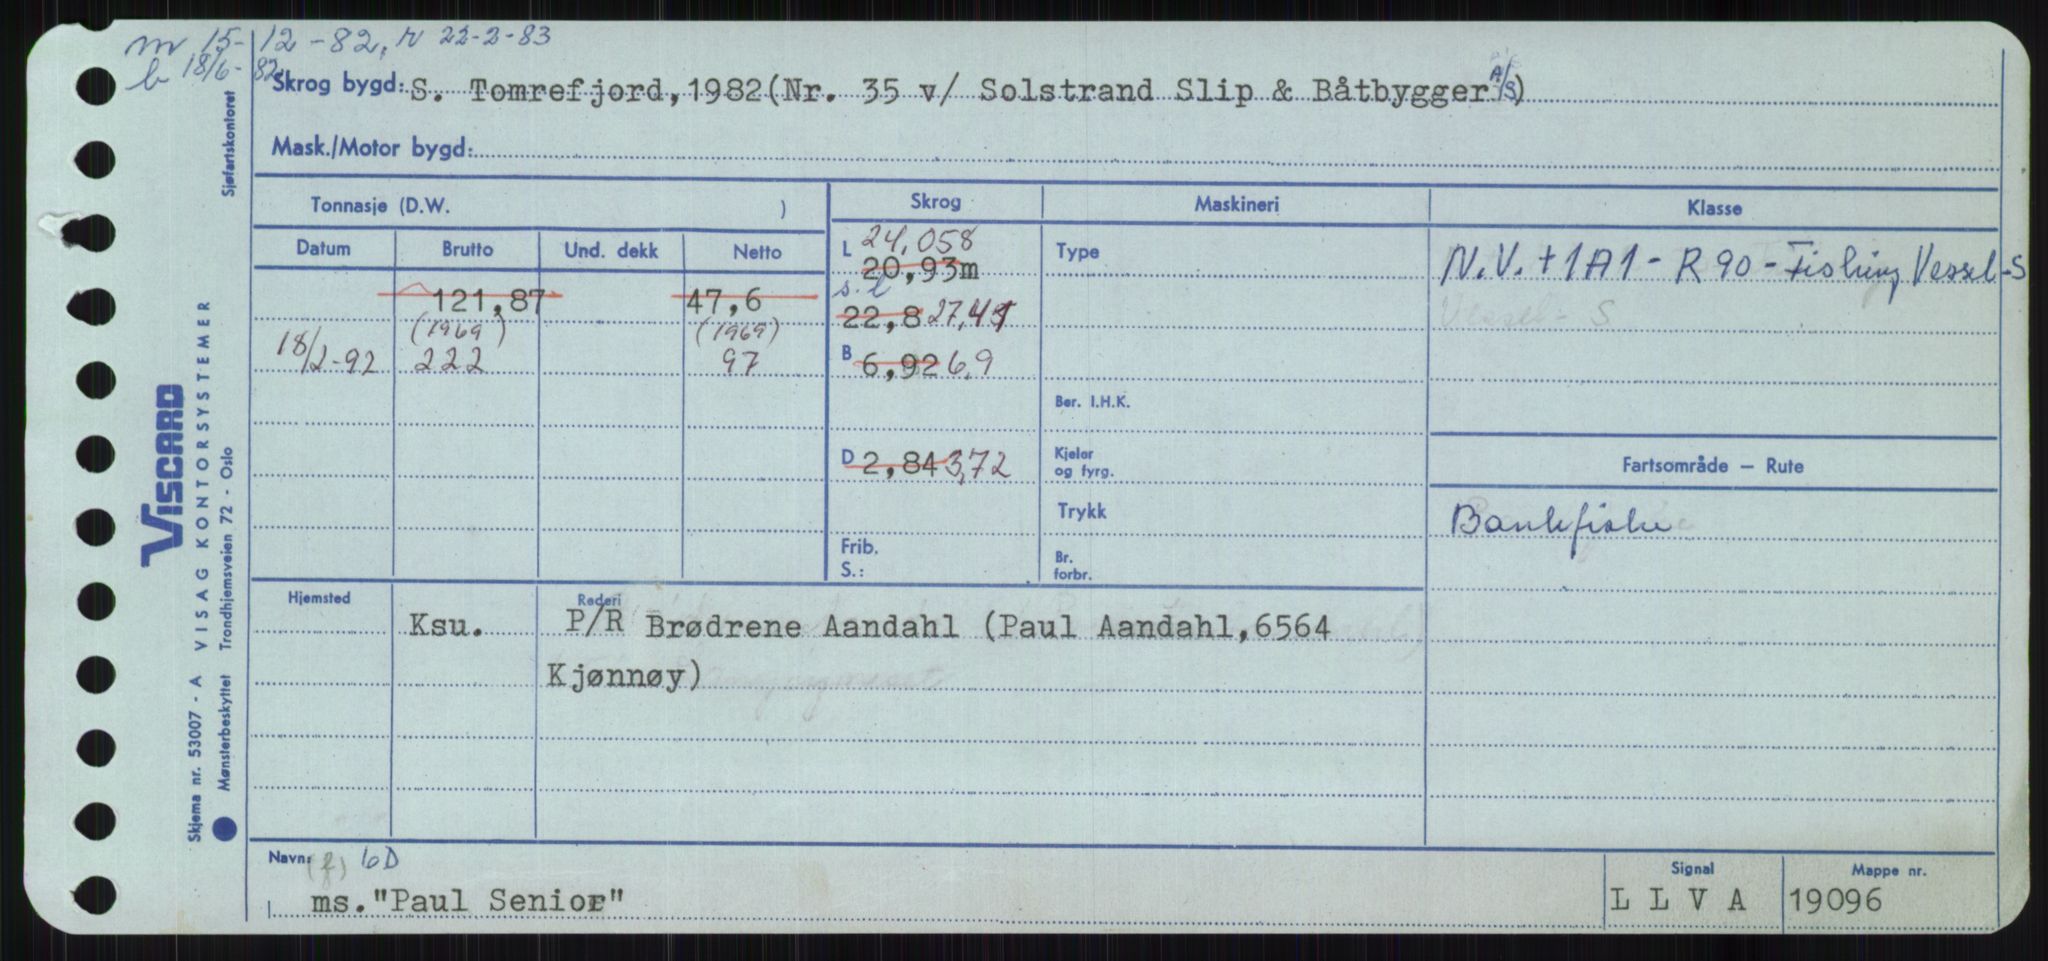 m 15-12-82, r 22-2-83
b 18/6-82
Skrog bygd: S. Tomrefjord, 1982(Nr. 35 v/ Solstrand Slip & Båtbyggeri A/S)
Mask./Motor bygd:
Tonnasje (D.W. )
Skrog
Maskineri
Klasse
Datum
Brutto
Und. dekk
Netto
121,87
47,6
(1969)
(1969)
18/2-92
222
97
L
24,058
20,93m
s.l
22,8 27,41
B
6,92 6,9
D
2,84 3,72
Frib.
S.:
Type
Ber. I.H.K.
Kjeler
og fyrg.
Trykk
Br.
forbr.
N.V. +1A1 - R90 - Fishing Vessel - S
Vessel - S
Fartsområde – Rute
Bankfiske
Hjemsted
Ksu.
Rederi
P/R Brødrene Aandahl (Paul Aandahl,6564
Kjønnøy)
Navn:
(f) 6D
ms."Paul Senior"
Signal
L L V A
Mappe nr.
19096
Sjøfartskontoret
VISCARD
VISAG KONTORSYSTEMER
Skjema nr. 53007 - A
Mønsterbeskyttet Trondhjemsveien 72 - Oslo